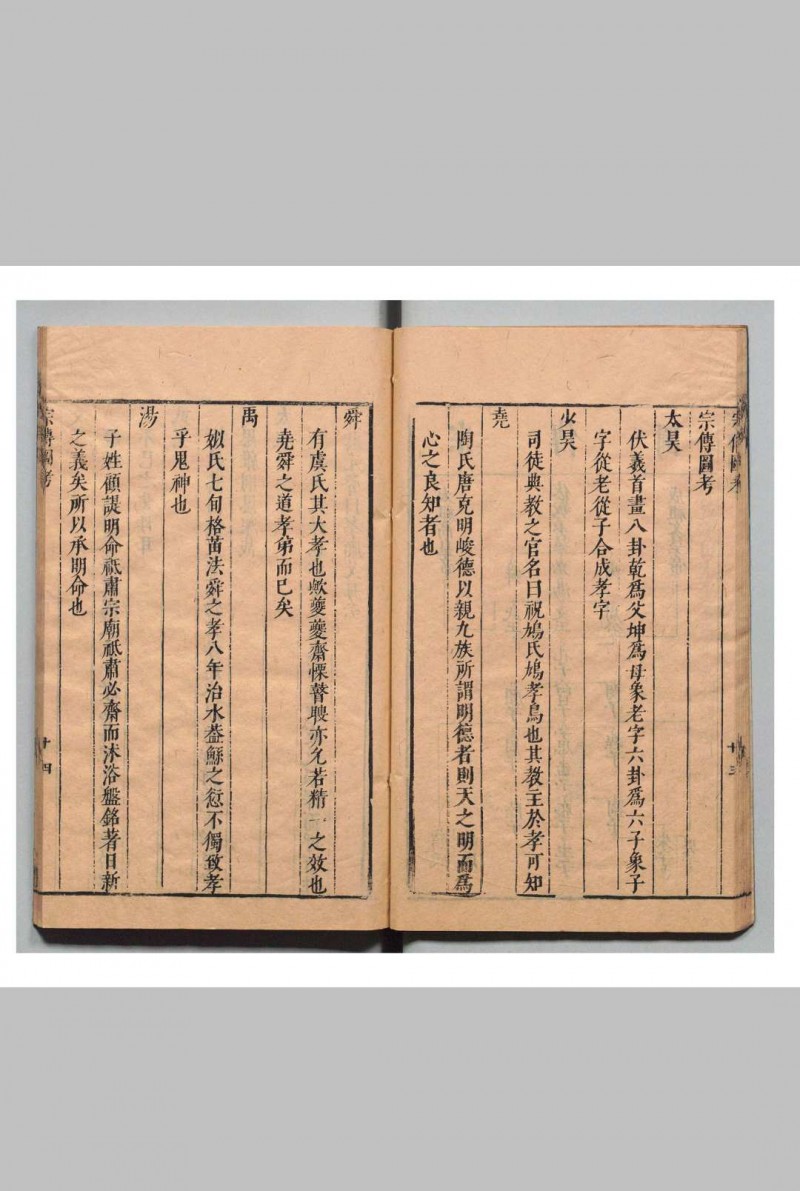 宗傳圖考
太昊
伏羲首畫八卦乾爲父坤爲母象老字六卦爲六子象子
字從老從子合成孝字
少昊
司徒典教之官名曰祝鳩氏鳩孝鳥也其教主於孝可知
堯
陶氏唐克明峻德以親九族所謂明德者則天之明而爲
心之良知者也
十三
舜
有虞氏其大孝也歟夔夔齋慄瞽瞍亦允若精一之效也
堯舜之道孝弟而已矣
禹
姒氏七旬格苗法舜之孝八年治水葢鯀之愆不獨致孝
乎鬼神也
湯
子姓顧諟明命祇肅宗廟祇肅必齋而沐浴盤銘著日新
之義矣所以承明命也
宗傳圖考
十四